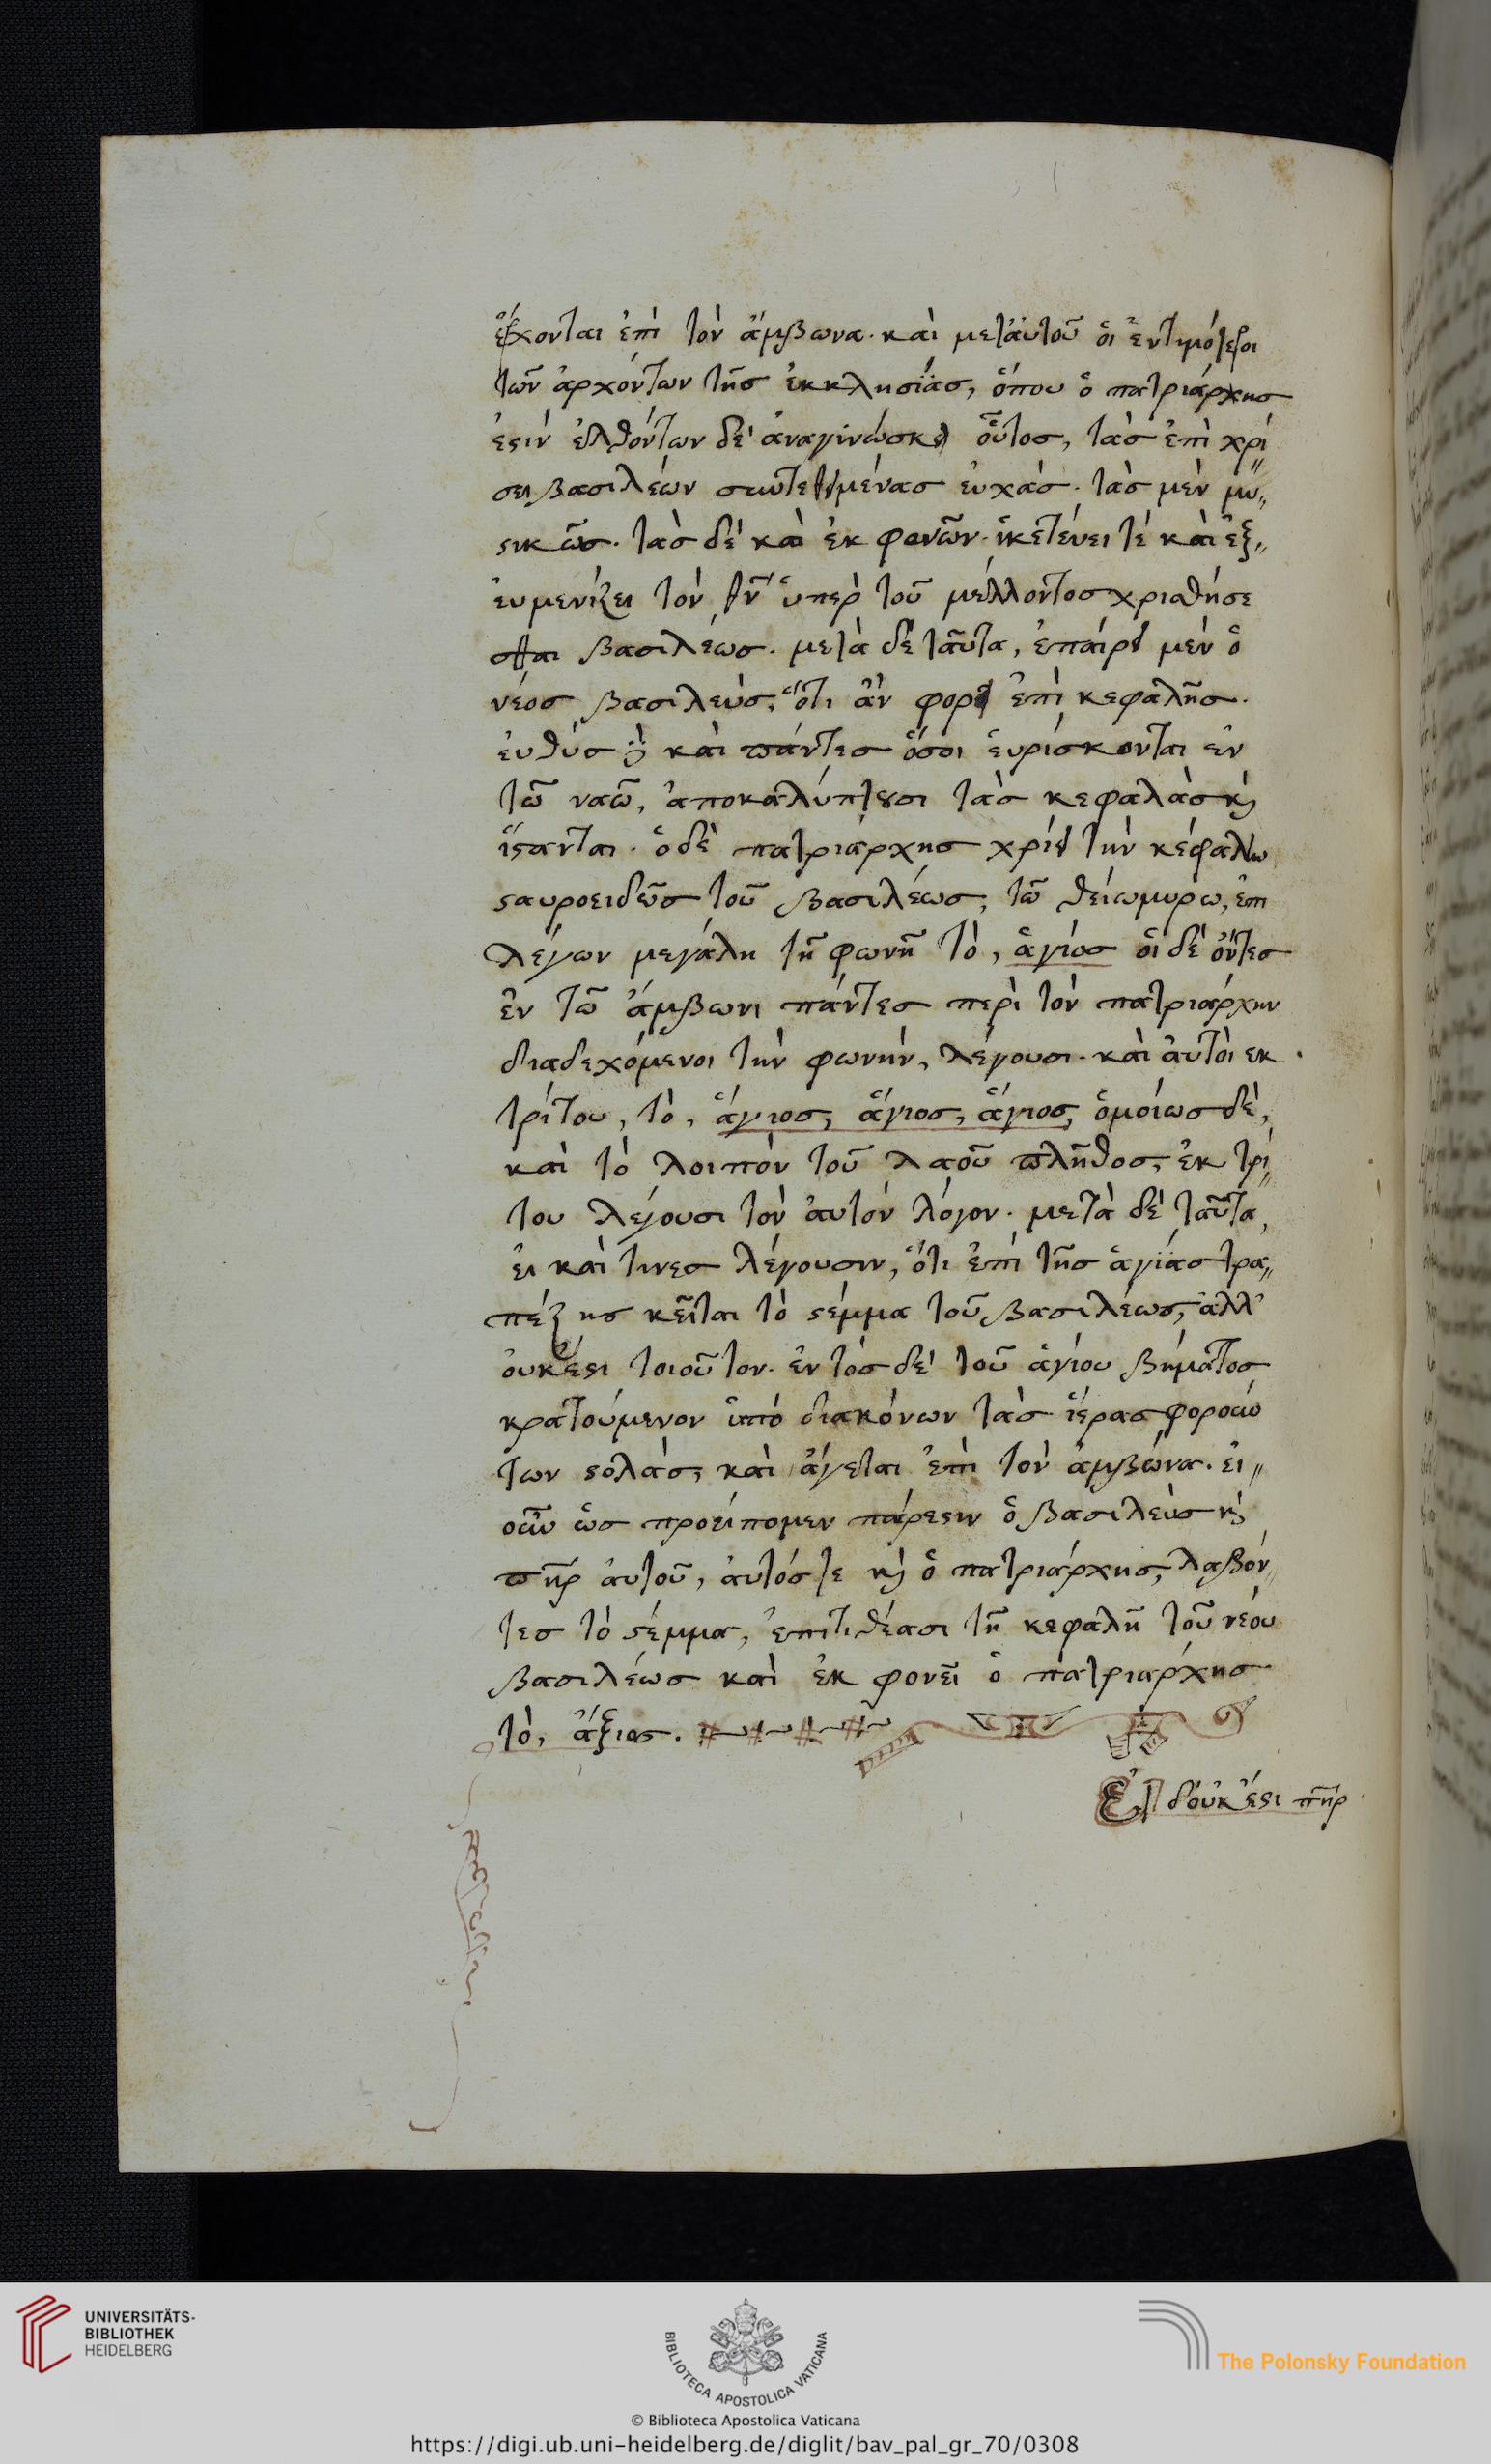 ἔρχονται ἐπὶ τὸν ἄμβωνα· καὶ μετ' αὐτοῦ οἱ ἐντιμότεροι
τῶν ἀρχόντων τῆς ἐκκλησίας, ὅπου ὁ πατριάρχης
ἐστίν ἐλθόντων δὲ ἀναγινώσκει οὗτος, τὰς ἐπὶ χρί
σει βασιλέων συντεθειμένας εὐχάς· τὰς μὲν μυ
στικῶς· τὰς δὲ καὶ ἐκ φανῶν· ἱκετεύει τὲ καὶ ἐξ
ευμενίζει τὸν θν ὑπὲρ τοῦ μέλλοντος χρισθήσε
σθαι βασιλέως· μετὰ δὲ ταῦτα, ἐπαίρει μὲν ὁ
νέος βασιλεὺς, ὅτι ἂν φορεῖ ἐπὶ κεφαλῆς·
εὐθὺς δὲ καὶ πάντες ὅσοι εὑρίσκονται ἐν
τῶ ναῶ, ἀποκαλύπτουσι τὰς κεφαλὰς καὶ
ἵστανται· ὁ δὲ πατριάρχης χρίει τὴν κεφαλὴν
σταυροειδῶς τοῦ βασιλέως, τῶ θείω μύρω, ἐπι
λέγων μεγάλη τῆ φωνῆ τὸ, ἅγιος οἱ δὲ ὄντες
ἐν τῶ ἄμβωνι πάντες περὶ τὸν πατριάρχην
διαδεχόμενοι τὴν φωνὴν, λέγουσι· καὶ αὐτοὶ εκ
τρίτου, τὸ, ἅγιος, ἅγιος, ἅγιος, ὁμοίως δὲ,
καὶ τὸ λοιπὸν τοῦ λαοῦ πλῆθος, ἐκ τρί
του λέγουσι τὸν αὐτὸν λόγον· μετὰ δὲ ταῦτα,
εἰ καὶ τινες λέγουσιν, ὅτι ἐπὶ τῆς ἁγίας τρα
πέζης κεῖται τὸ στέμμα τοῦ βασιλέως, ἀλλ'
οὐκ ἔστι τοιοῦτον· ἐντὸς δὲ τοῦ ἁγίου βήματος
κρατούμενον ὑπὸ διακόνων τὰς ἱερας φορούν
των στολὰς, καὶ ἄγεται ἐπὶ τὸν ἀμβώνα· εἰ
οὖν ὡς προείπομεν πάρεστιν ὁ βασιλεὺς καὶ
πηρ αὐτοῦ, αὐτός τε καὶ ὁ πατριάρχης, λαβόν
τες τὸ στέμμα, ἐπιτιθέασι τῆ κεφαλῆ τοῦ νέου
βασιλέως καὶ ἐκ φονεῖ ὁ πατριάρχης
τὸ, ἄξιος.
Εἰ δ' οὐκ ἔστι πηρ
UNIVERSITÄTS-
BIBLIOTHEK
HEIDELBERG
BIBLIOTECA APOSTOLICA VATICANA
The Polonsky Foundation
© Biblioteca Apostolica Vaticana
https://digi.ub.uni-heidelberg.de/diglit/bav_pal_gr_70/0308